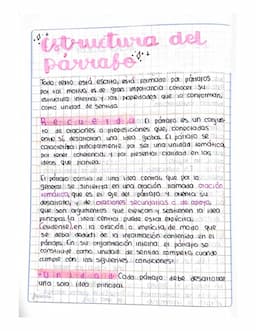 Estructura del
párrafo
Todo texto está escrito, está formado por párrafos
por tal motivo, es de gran importancia conocer su
estructura interna y las propiedades que la conforman,
como unidad de sentido.
Recuerda El párrafo es un conjun-
to de oraciones o proposiciones que, conectadas
entre sí, desarrollan una idea global. El párrafo se
caracteriza principalmente por ser una unidad temática,
por tener coherencia y por presentar claridad en las
ideas que plantea.
El párrafo consta de una idea central, que por lo
general se sintetiza en una oración llamada oración
temática, que es el eje del párrafo y orienta su
desarrollo; y de oraciones secundarias o de apoyo,
que son argumentos que evocan y sostienen la idea
principal. La idea central puede estar explícita
(evidente) en la oración o implícita, de modo que
se debe deducir de la información contenida en el
párrafo. En su organización interna, el párrafo se
constituye como unidad de sentido completo cuando
cumple con las siguientes condiciones:
Unidad: Cada párrafo debe desarrollar
una sola idea principal.